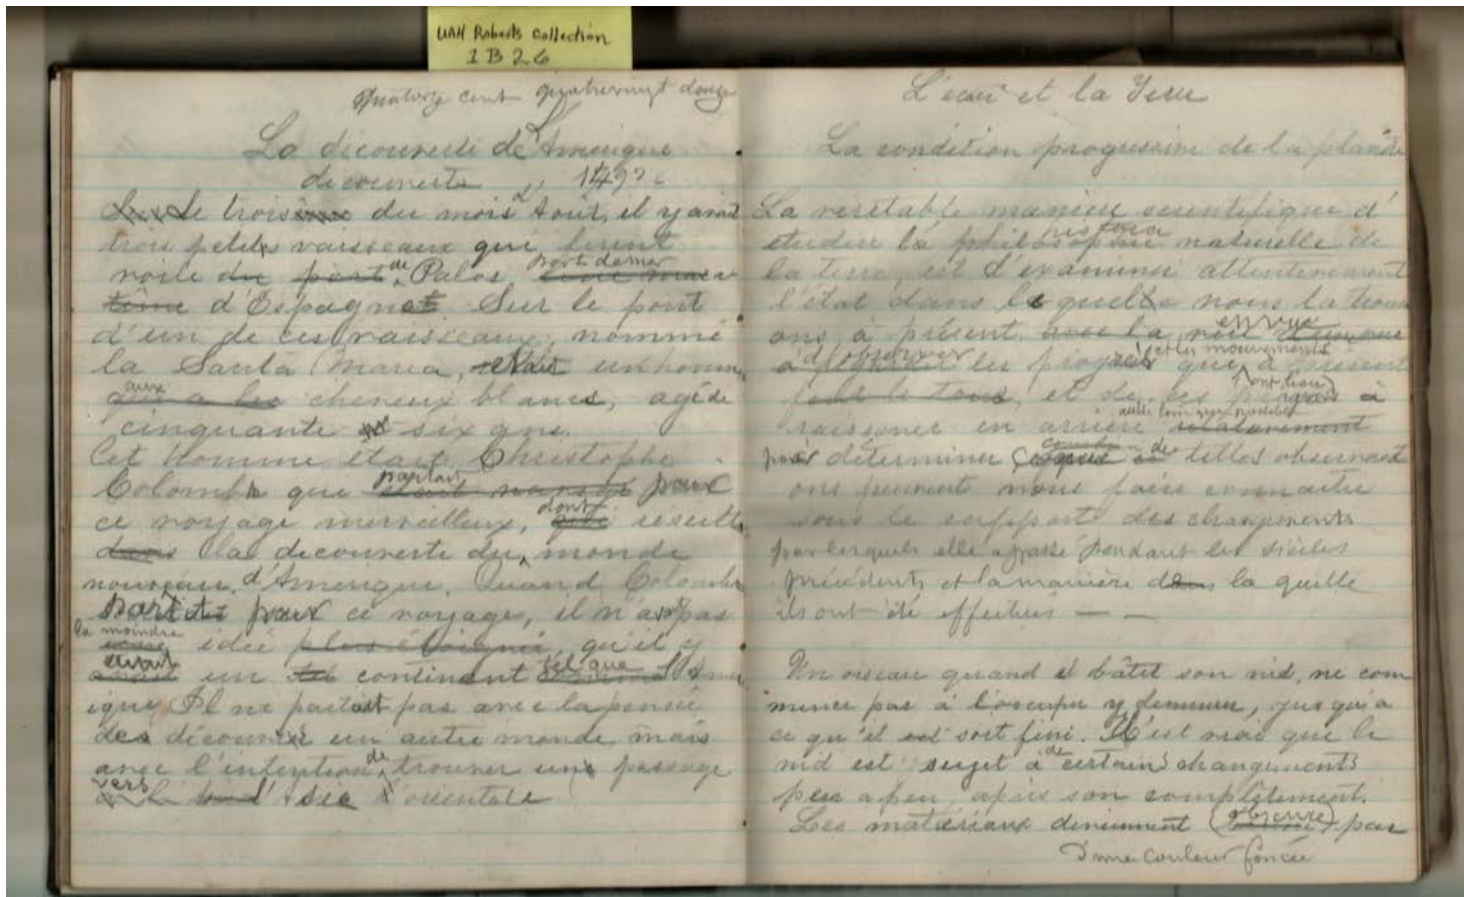 UAH Roberts Collection
1B26
quatorze cent quatrevingt douze
La découverte de l'Amerique
découverte 1492
Le trois du mois d'Aout, il y avait
trois petits vaisseaux qui firent
port de mer
voile du port de Palos
d'Espagne Sur le pont
d'un de ces vaisseaux, nommé
la Santa Maria, était un homme
aux
qui a les cheveux blancs, agé de
cinquante six ans.
Cet Homme était Christophe
partait
Colomb que pour
dont
ce voyage merveilleux, resulte
dans la découverte du monde
nouveau d'Amerique. Quand Colomb
partit pour ce voyage, il n'avait pas
la moindre
idée plus éloigné, qu'il y
avait un tel continent tel que l'Amer
ique. Il ne partait pas avec la pensée
des découvrir un autre monde mais
avec l'intention de trouver un passage
vers
l'Asie orientale
L'eau et la Terre
La condition progressive de la planète
La veretable maniere scientifique d'
histoire
etudier la philosophie naturelle de
la terre, est d'examiner attentivement
l'état dans lequelle nous la trouv
en vue
ons à présent avec la
d'observer et les mouvements
les progrès que à présent
ont lieu
font le tous, et de ces à
raisonner en arrière
pour déterminer de telles observati
ons peuvent nous faire connaitre
sous le rapport des changements
par lesquels elle a passé pendant les siècles
précédents et la manière dans la quelle
ils ont été effectués —
Un oiseau quand il bâtit son nid, ne com
mence pas à l'occuper y demeurer, jusqu'a
ce qu'il est soit fini. Il est vrai que le
nid est sujet a de certains changements
peu a peu, après son complêtement.
obscure
Les materiaux deviennent par
d'une couleur foncée